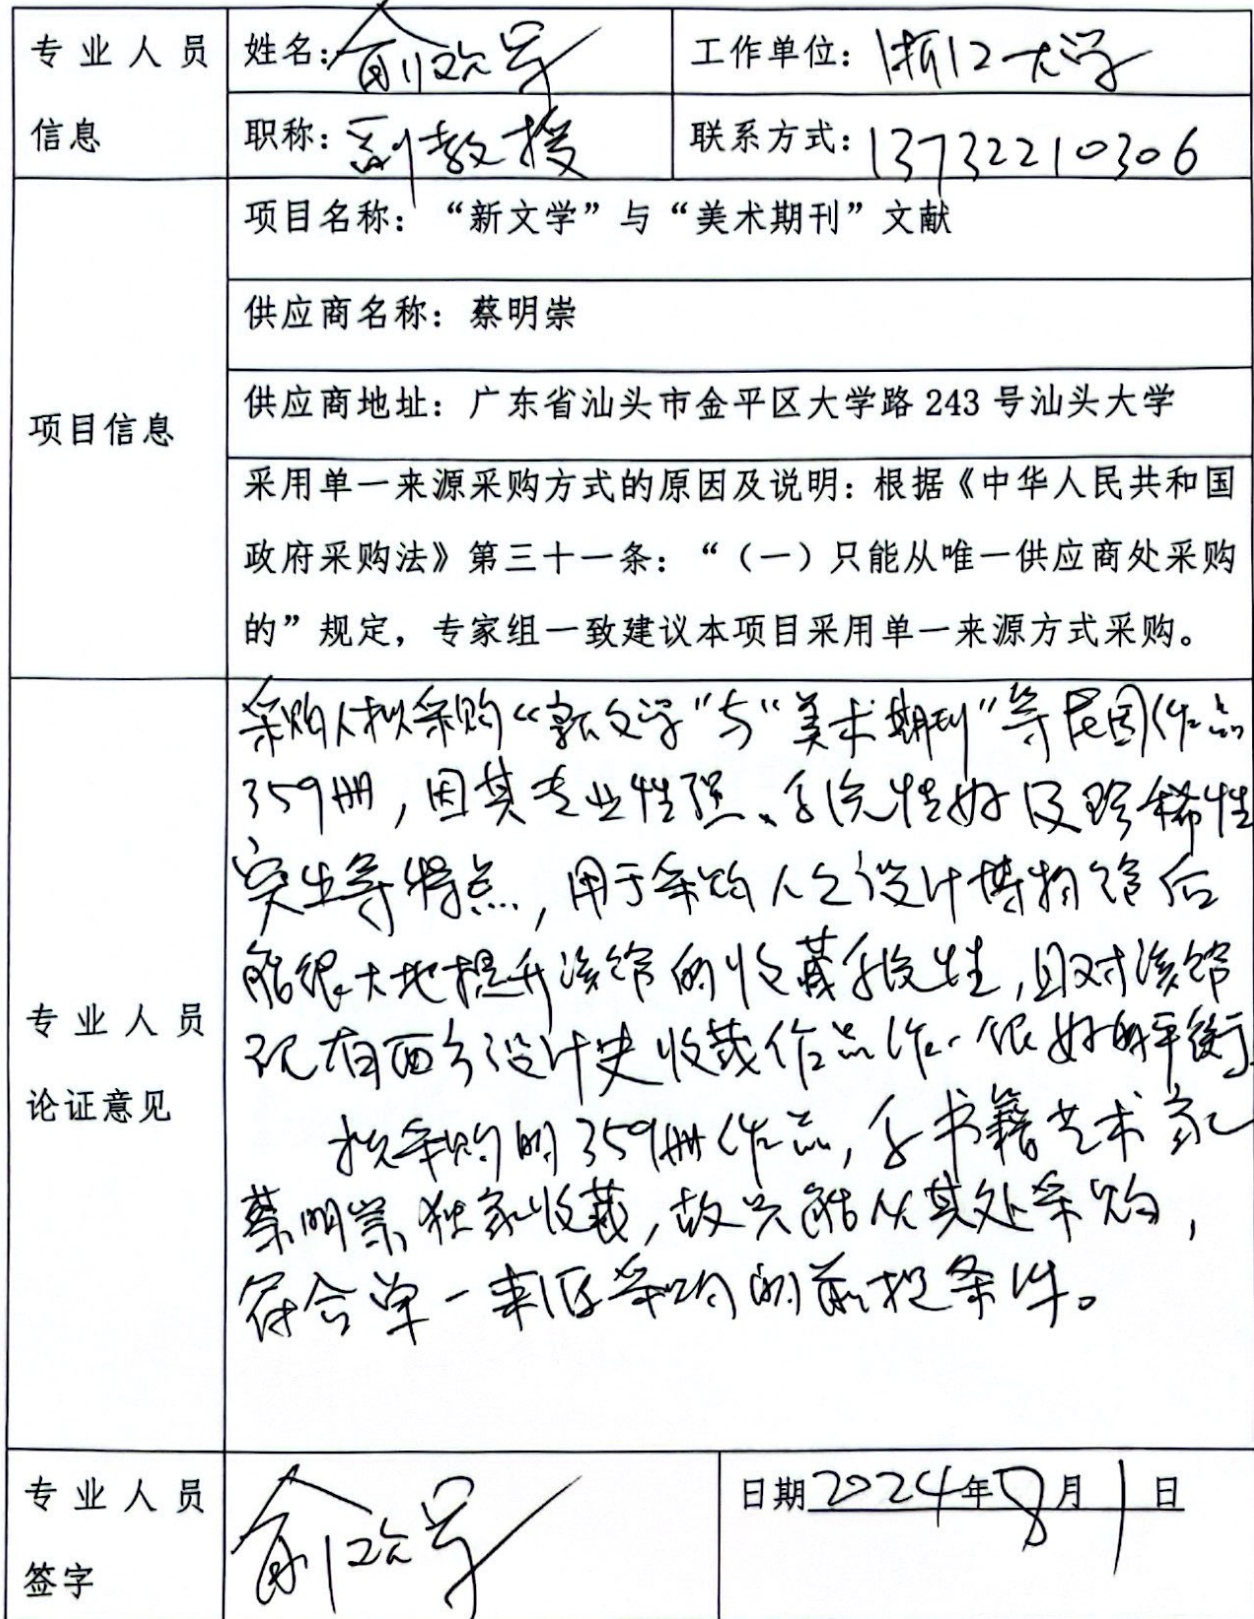 专业人员
信息
姓名:俞
工作单位：浙江大学
职称：副教授
联系方式：13732210306
项目信息
项目名称：“新文学”与“美术期刊”文献
供应商名称：蔡明崇
供应商地址：广东省汕头市金平区大学路 243 号汕头大学
采用单一来源采购方式的原因及说明：根据《中华人民共和国
政府采购法》第三十一条：“（一）只能从唯一供应商处采购
的”规定，专家组一致建议本项目采用单一来源方式采购。
专业人员
论证意见
采购人拟采购“新文学”与“美术期刊”等民国作品
359册，因其专业性强、系统性好及珍稀性
突出等特点，用于采购人之设计博物馆后
能很大地提升该馆的收藏系统性，且对该馆
现有西方设计史收藏作品作一很好的平衡。
拟采购的359册作品，系书籍艺术家
蔡明崇独家收藏，故只能从其处采购，
符合单一来源采购的前提条件。
专业人员
签字
俞
日期2024年8月1日